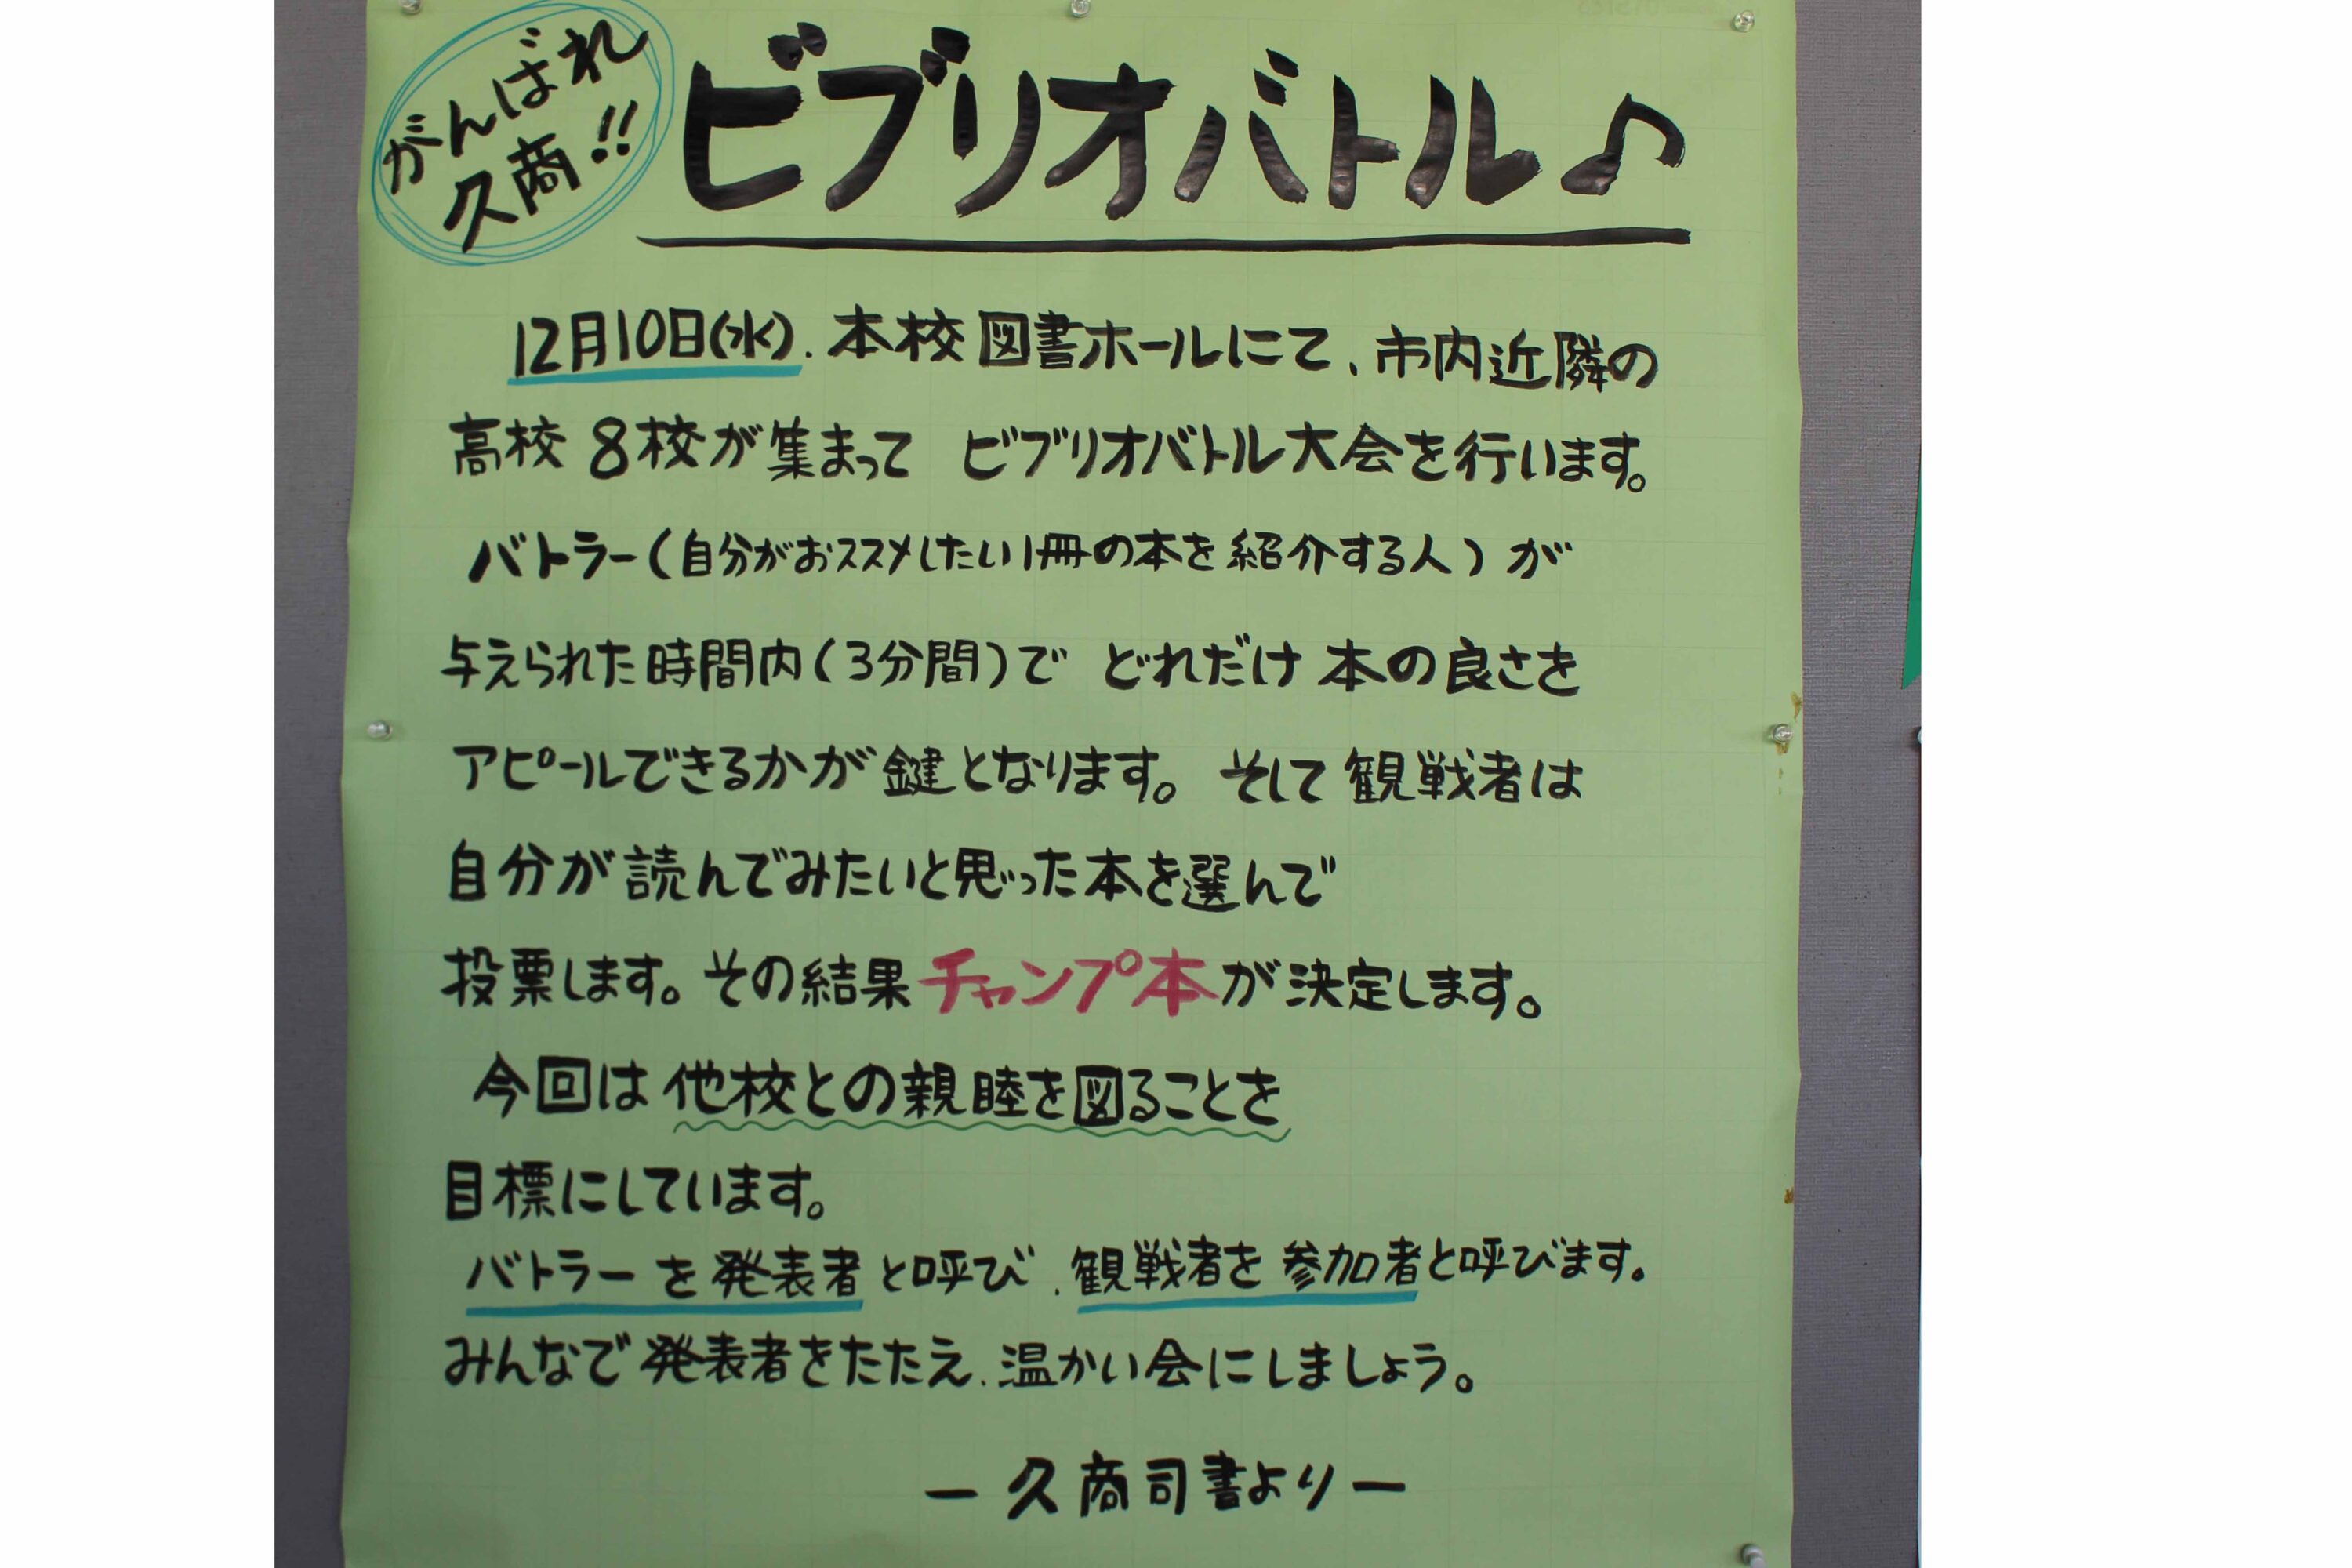 がんばれ
久商!!
ビブリオバトル♪
12月10日(水)、本校図書ホールにて、市内近隣の
高校8校が集まって ビブリオバトル大会を行います。
バトラー(自分がおススメしたい1冊の本を紹介する人)が
与えられた時間内(3分間)で どれだけ本の良さを
アピールできるかが鍵となります。そして観戦者は
自分が読んでみたいと思った本を選んで
投票します。その結果チャンプ本が決定します。
今回は他校との親睦を図ることを
目標にしています。
バトラーを発表者と呼び、観戦者を参加者と呼びます。
みんなで発表者をたたえ、温かい会にしましょう。
ー久商司書よりー